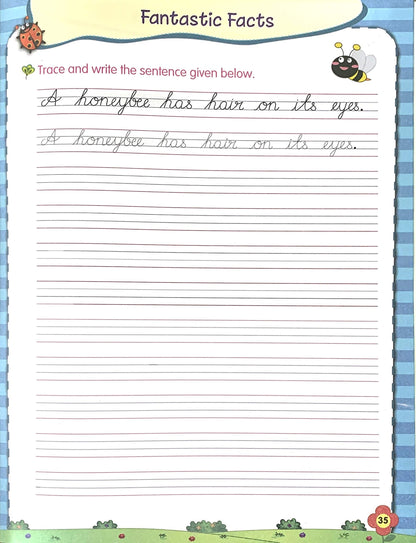 Fantastic Facts
Trace and write the sentence given below.
A honeybee has hair on its eyes.
A honeybee has hair on its eyes.
35